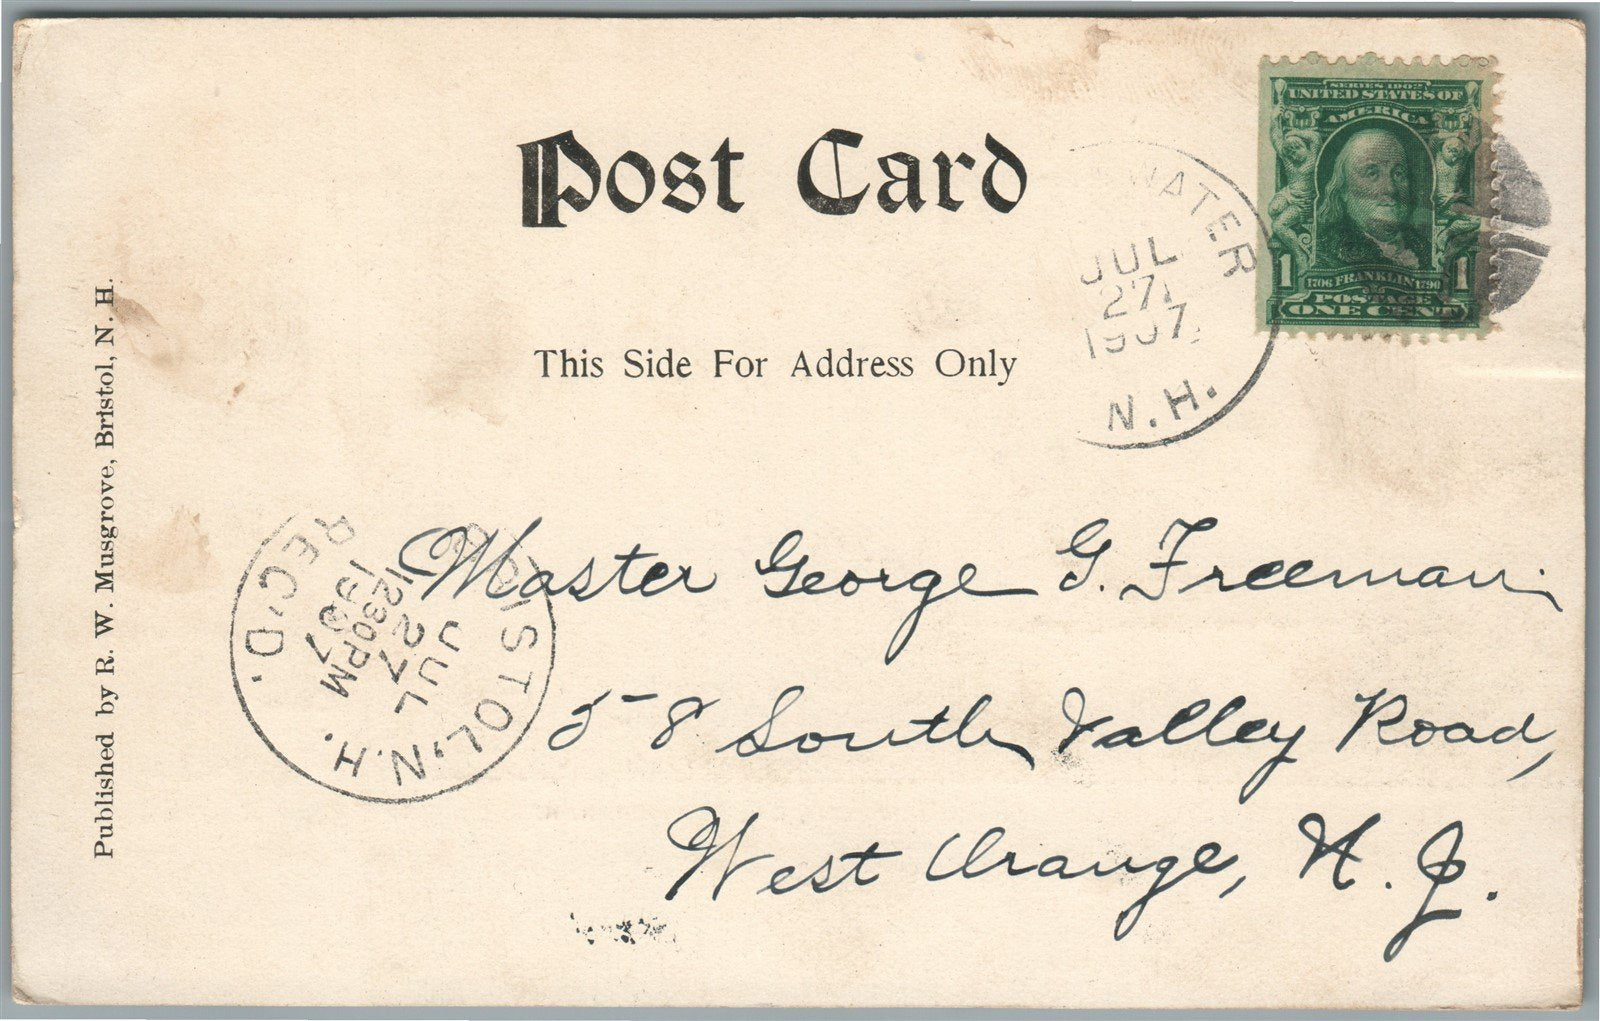 Post Card
This Side For Address Only
SERIES 1902
UNITED STATES OF
AMERICA
1 1706 FRANKLIN 1790 1
POSTAGE
ONE CENT
WATER
JUL
27
1907
N.H.
Published by R. W. Musgrove, Bristol, N. H.
BRISTOL, N.H.
JUL
27
1230PM
1907
REC'D.
Master George G. Freeman,
58 South Valley Road,
West Orange, N. J.